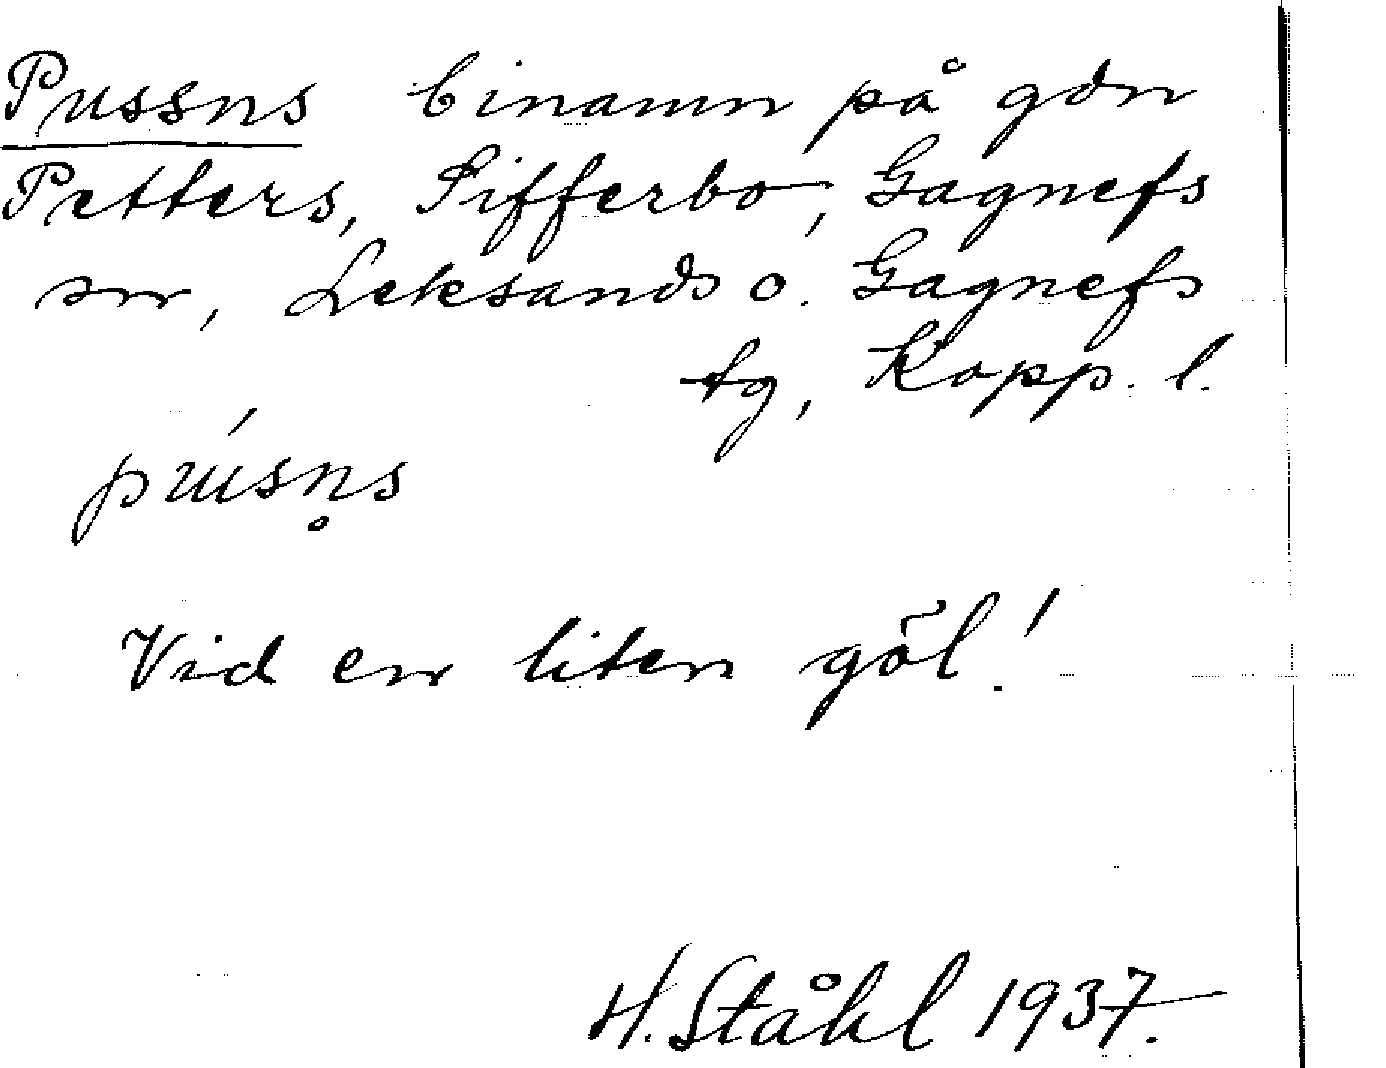 Pussns binamn på gdn
Petters, Sifferbo, Gagnefs
sn, Leksands o. Gagnefs
tg, Kopp. l.
pu̍sn̥s
Vid en liten göl!
H. Ståhl 1937.